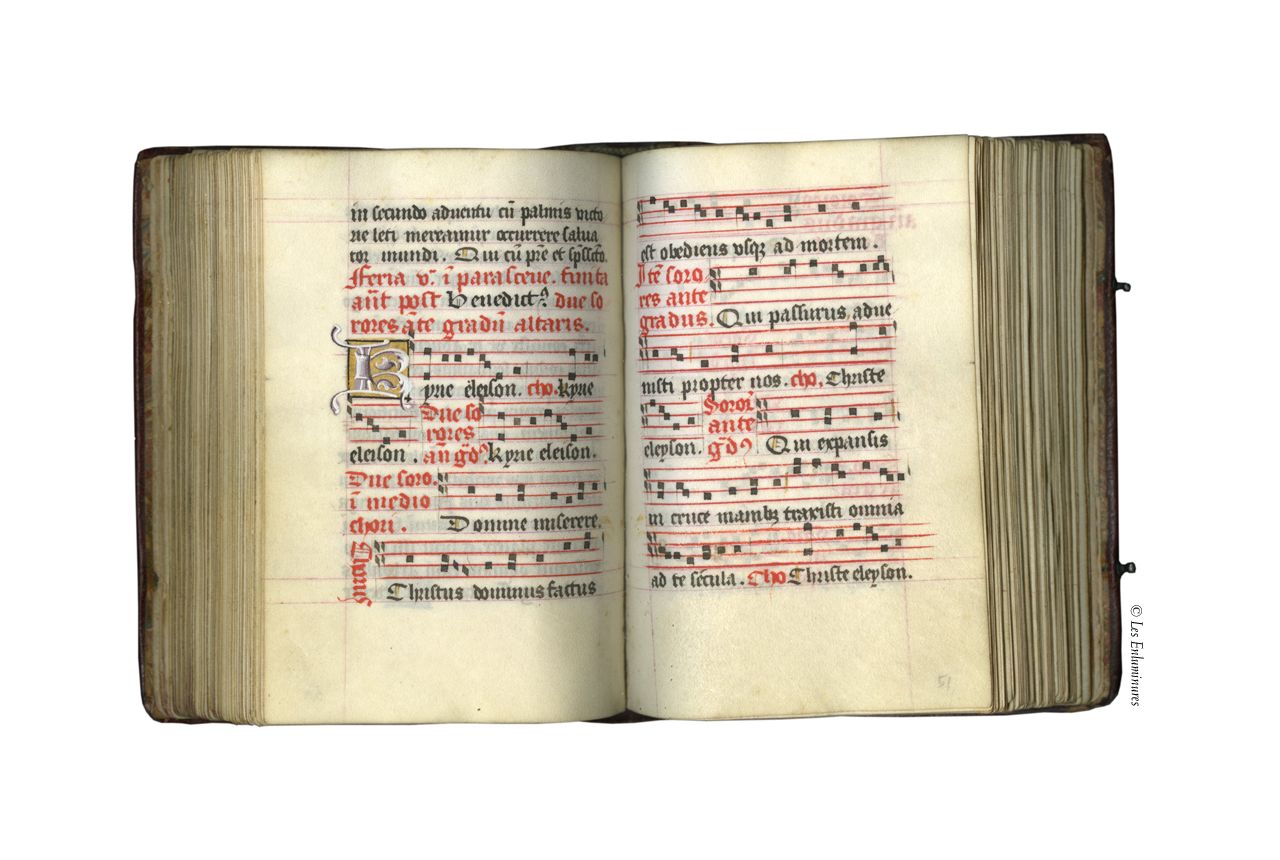 in secundo adventu cũ palmis victo
rie leti mereamur occurrere salva
tor mundi. Qui cũ pr̃e et sp̃ssctõ.
Feria v. ĩ parasceve. finita
ant̃ post Benedictꝰ due so
rores ãte gradũ altaris.
Kyrie eleison. cho. Kyrie
eleison. Due so
rores
an̄ gdꝰ Kyrie eleison.
Due soro.
ĩ medio
chori. Domine miserere.
Chorus
Christus dominus factus
est obediens usqꝫ ad mortem.
Itẽ soro
res ante
gradus. Qui passurus adve
nisti propter nos. cho. Christe
eleyson. Soror̃
ante
gdꝰ Qui expansis
in cruce manibꝫ traxisti omnia
ad te secula. Cho Christe eleyson.
51
© Les Enluminures